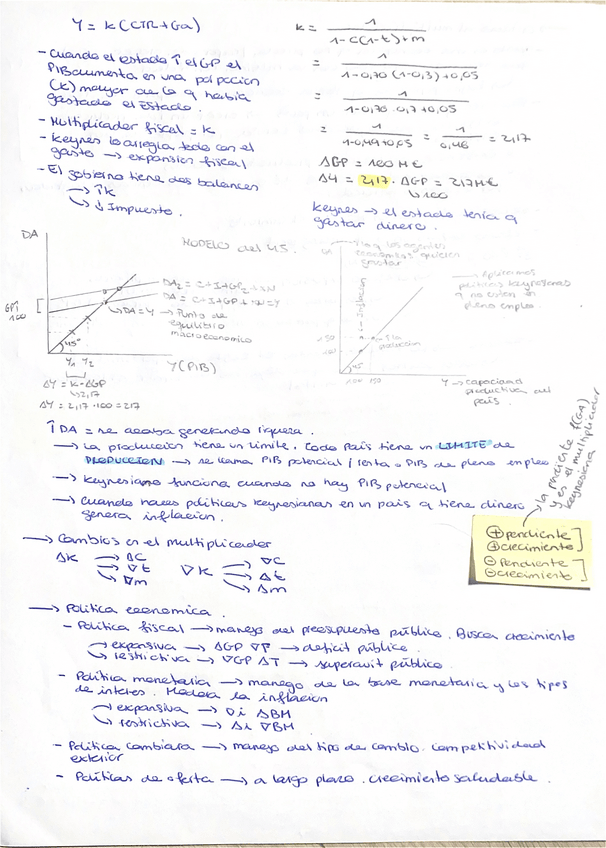 Y = k (CTR + Ga)
- Cuando el estado ↑ el GP el
PIB aumenta en una
(k) mayor de lo q había
gastado el Estado.
- Multiplicador fiscal = k
- Keynes lo arregla todo con el
gasto → expansión fiscal
- El gobierno tiene dos balances
→ ↑k
→ ↓ Impuesto.
k = 1 / 1-c(1-t)+m
= 1 / 1-0,70 (1-0,3)+0,05
= 1 / 1-0,70·0,7+0,05
= 1 / 1-0,49+0,05 = 1 / 0,46 = 2,17
ΔGP = 100 M€
ΔY = 2,17 · ΔGP = 217M€
↳ 100
Keynes → el estado tenía q
gastar dinero.
DA
MODELO del 45.
DA2 = C+I+GP2+XN
DA = C+I+GP+XN=Y
↳ DA=Y → Punto de
equilibrio
macroeconomico
GP↑
100
45°
Y1 Y2
Y (PIB)
ΔY = k·ΔGP
↳ 2,17
ΔY = 2,17·100 = 217
lo q los agentes
economicos quieren
gastar
→ Aplicamos
políticas keynesianas
q no estan en
pleno empleo.
Inflacion
producción
45°
100 150
Y → capacidad
productiva del
país.
↑DA = se acaba generando riqueza.
→ La produccion tiene un limite. Todo País tiene un LIMITE de
PRODUCCION → se llama PIB potencial / renta o PIB de pleno empleo
→ Keynesiano funciona cuando no hay PIB potencial
→ Cuando haces políticas keynesianas en un país q tiene dinero
genera inflacion.
→ la pendiente f(GA)
y es el multiplicador
keynesiana
⊕ pendiente
⊕ crecimiento
⊖ Pendiente
⊖ crecimiento
→ Cambios en el multiplicador
Δk → ΔC
→ ∇t
→ ∇m
∇k → ∇C
→ Δt
→ Δm
→ Política economica.
- Política fiscal → manejo del presupuesto público. Busca crecimiento
→ expansiva → ΔGP ∇T → deficit público.
→ restrictiva → ∇GP ΔT → superavit público.
- Política monetaria → manego de la base monetaria y los tipos
de interes. Modera la inflacion
→ expansiva → ∇i ΔBM
→ restrictiva → Δi ∇BM
- Política cambiara → manejo del tipo de cambio. Competitividad
exterior
- Políticas de oferta → a largo plazo. crecimiento saludable.